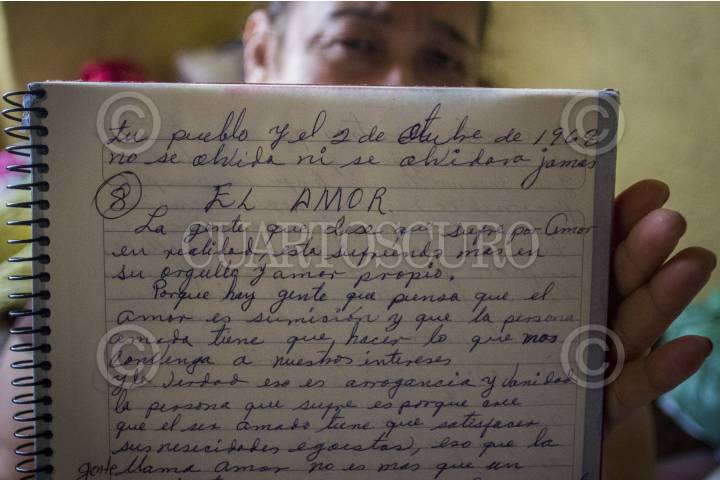 tu pueblo y el 2 de Octubre de 1968
no se olvida ni se olvidara jamas
8 EL AMOR
La gente que dise que sufre por Amor
en realidad esta sufriendo mas en
su orgullo y amor propio.
Porque hay gente que piensa que el
amor es sumición y que la persona
amada tiene que hacer lo que mas
convenga a nuestros intereses
y la verdad eso es arrogancia y vanidad
la persona que sufre es porque cree
que el ser amado tiene que satisfacer
sus nesecidades egoestas, eso que la
gente llama amor no es mas que un
CUARTOSCURO